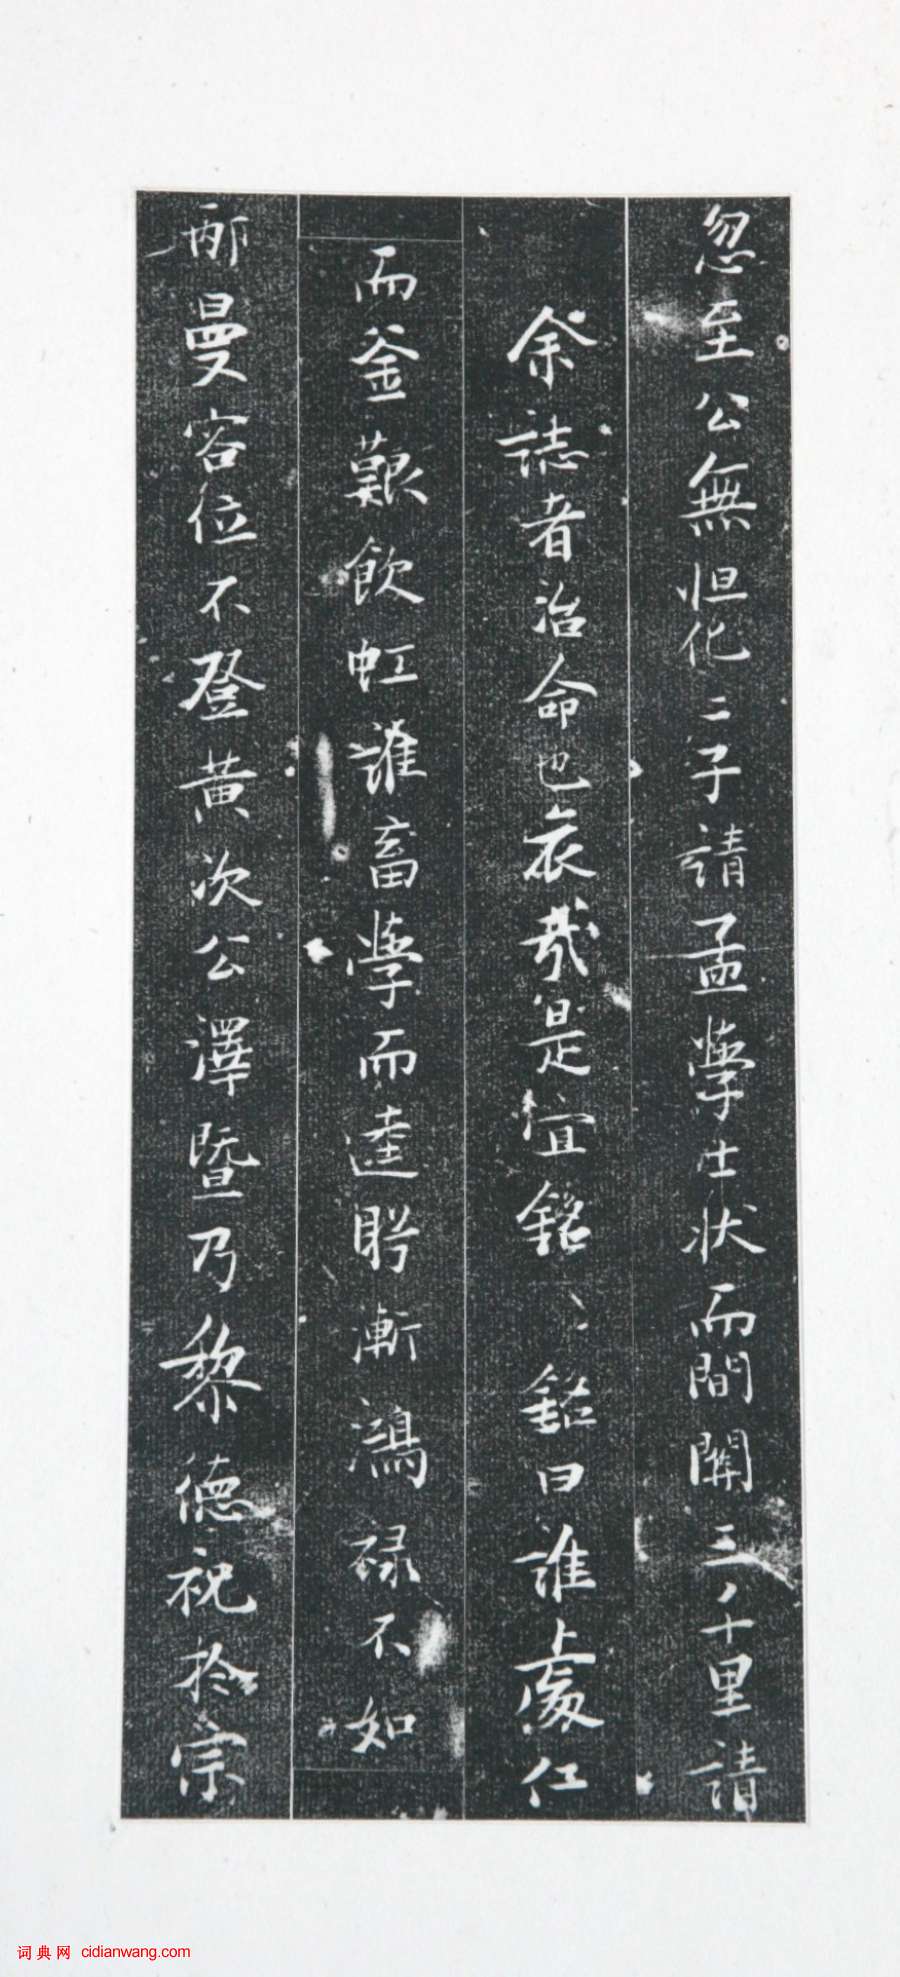 忽至公無怛化二子請孟學士狀而間關三千里請
余誌者治命也哀哉是宜銘〻銘曰誰處仁
而釜艱飲虹誰畜學而逵盻漸鴻祿不如
邴曼容位不登黄次公澤暨乃黎德祝於宗
词典网 cidianwang.com